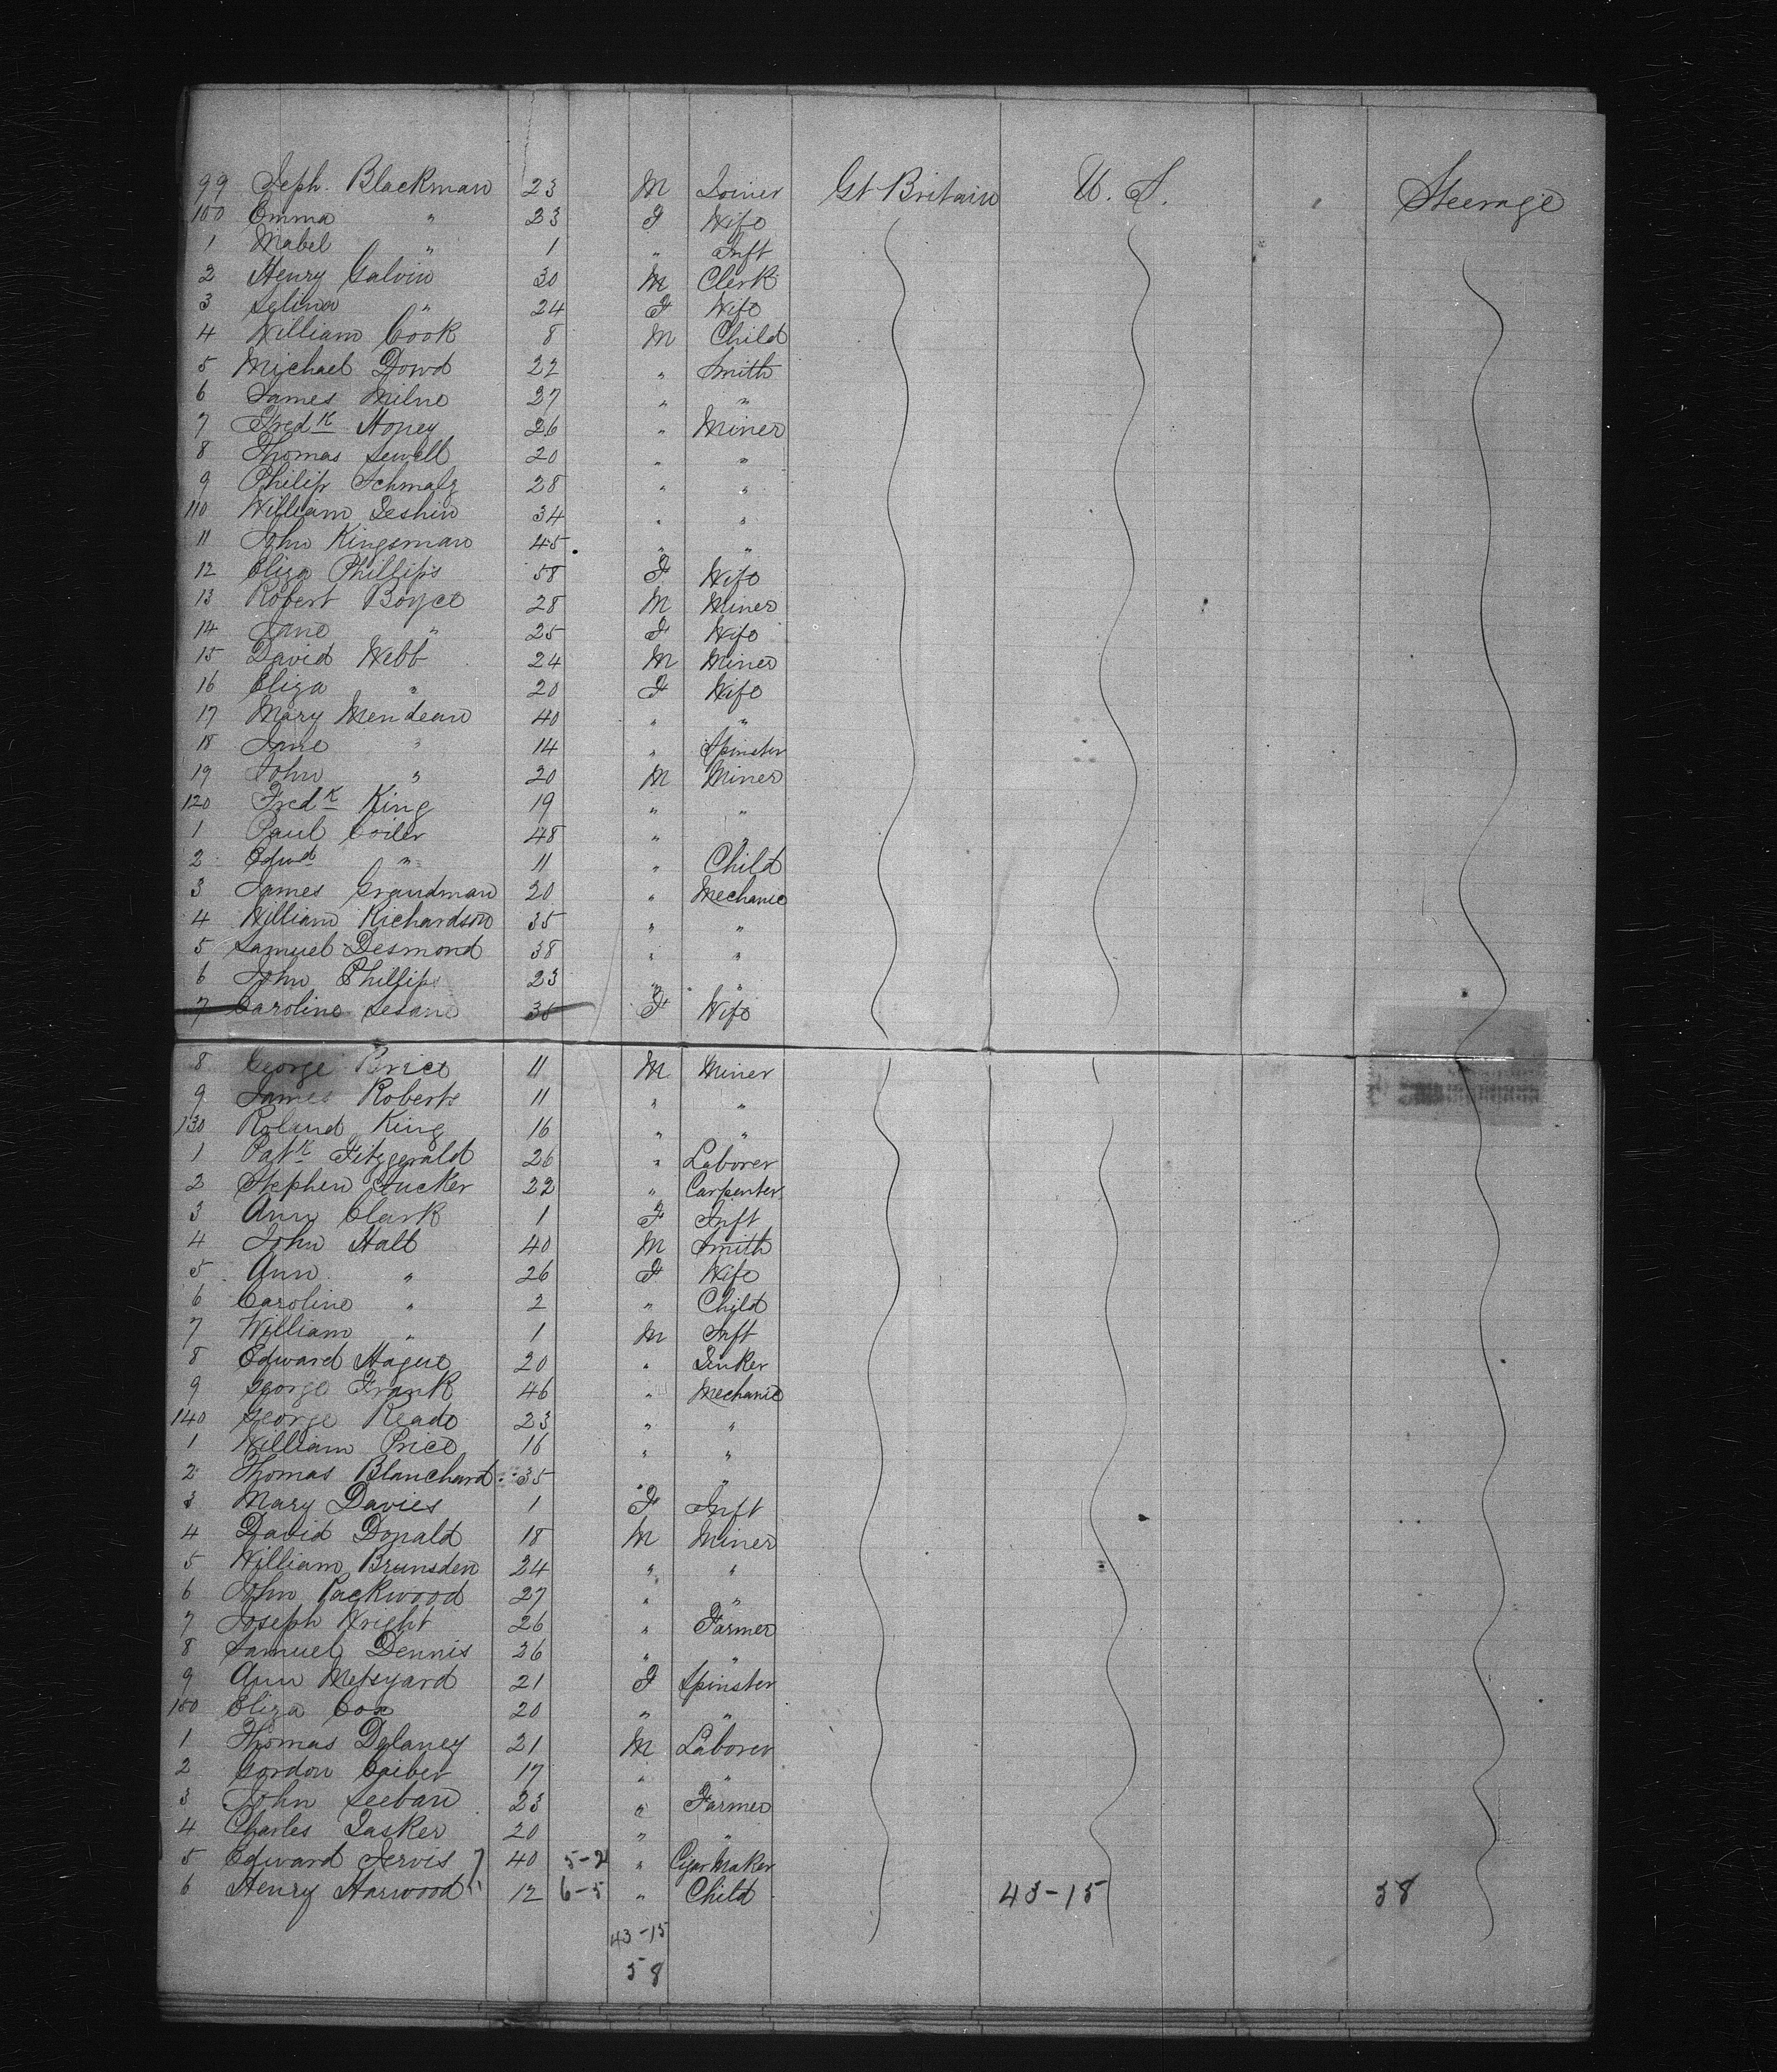 99 Jeph. Blackman 23 M Joiner Gt Britain U. S. Steerage
100 Emma " 23 F Wife
1 Mabel " 1 " Inft
2 Henry Galvin 30 M Clerk
3 Selina " 24 F Wife
4 William Cook 8 M Child
5 Michael Dowd 22 " Smith
6 James Milne 27 " "
7 Fredk Honey 26 " Miner
8 Thomas Sewell 20 " "
9 Philip Schmalz 28 " "
110 William Jeshin 34 " "
11 John Kingsman 45 " "
12 Eliza Phillips 58 F Wife
13 Robert Boyce 28 M Miner
14 Jane " 25 F Wife
15 David Webb 24 M Miner
16 Eliza " 20 F Wife
17 Mary Mendean 40 " "
18 Jane " 14 " Spinster
19 John " 20 M Miner
120 Fredk King 19 " "
1 Paul Coiler 48 " "
2 Edwd " 11 " Child
3 James Grandman 20 " Mechanic
4 William Richardson 35 " "
5 Samuel Desmond 38 " "
6 John Phillips 23 " "
7 Caroline Sesane F Wife
8 George Price 11 M Miner
9 James Roberts 11 " "
130 Roland King 16 " "
1 Patk Fitzgerald 26 " Laborer
2 Stephen Tucker 22 " Carpenter
3 Ann Clark 1 F Inft
4 John Hall 40 M Smith
5 Ann " 26 F Wife
6 Caroline " 2 " Child
7 William " 1 M Inft
8 Edward Hague 20 "
9 George Frank 46 " Mechanic
140 George Reade 23 " "
1 William Price 16 " "
2 Thomas Blanchard 35 " "
3 Mary Davies 1 F Inft
4 David Donald 18 M Miner
5 William Brunsden 24 " "
6 John Packwood 27 " "
7 Joseph Wright 26 " Farmer
8 Samuel Dennis 26 " "
9 Ann Metsyard 21 F Spinster
150 Eliza Cox 20 " "
1 Thomas Delaney 21 M Laborer
2 Gordon Caiber 17 " "
3 John Seeban 23 " Farmer
4 Charles Tasker 20 " "
5 Edward Jervis 40 5-2 " Cigar Maker
6 Henry Harwood 12 6-5 " Child 43-15 58
43-15
58